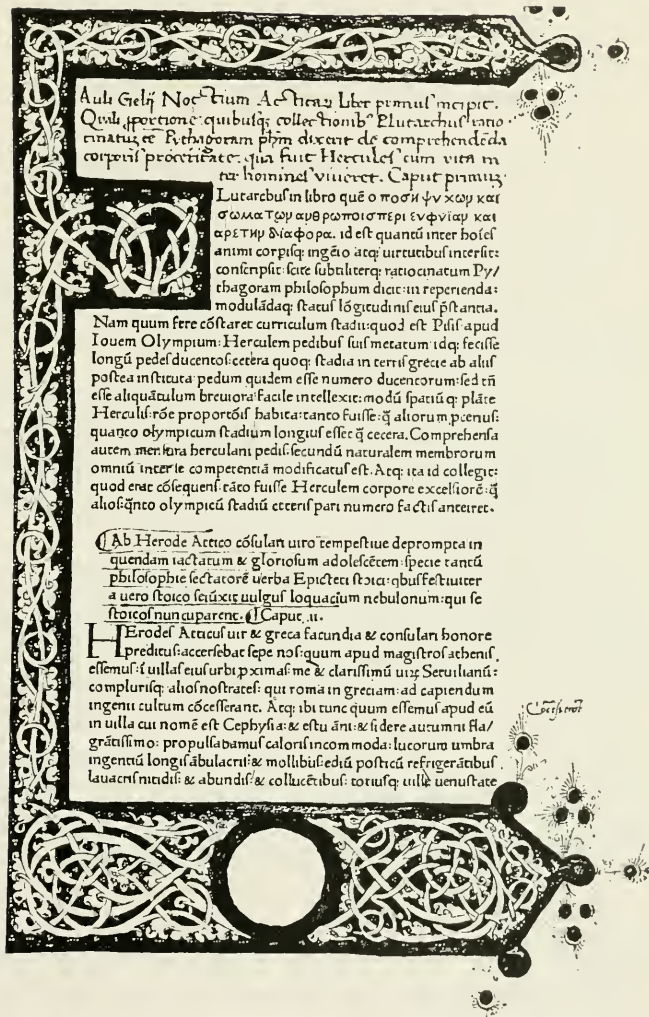 Auli Gelij Noctium Acticaꝝ liber primus incipit.
Quali ꝓportione: quibusq; collectionib⁹ Plutarchus ratio-
cinatuꝫ eē Pythagoram phm dixerit de comprehendēda
corporis proceritate: qua fuit Hercules cum vita in
ter homines viueret. Caput primuꝫ.
PLutarchus in libro quē ο ποση ψυχων και
σωματων ανθρωποισ περι ευφυιαν και
αρετην διαφορα. id est quantū inter hoīes
animi corpisq; ingēio atq; uirtutibus intersit:
conscripsit: scite subtiliterq; ratiocinatum Py/
thagoram philosophum dicit: in reperienda:
modulādaq; status lōgitudinis eius p̄stantia.
Nam quum fere cōstaret curriculum stadii: quod est Pisis apud
Iouem Olympium: Herculem pedibus suis metatum: idq; fecisse
longū pedes ducentos: cetera quoq; stadia in terris grecie ab aliis
postea instituta: pedum quidem esse numero ducentorum: sed tn̄
esse aliquātulum breuiora: facile intellexit: modū spatiū q; plāte
Herculis: rōe proportōis habita: tanto fuisse: q̄ aliorum ꝓcerius:
quanto olympicum stadium longius esset q̄ cetera. Comprehensa
autem mensura herculani pedis: secundū naturalem membrorum
omniū inter se competentiā modificatus est. Atq; ita id collegit:
quod erat cōsequens: tāto fuisse Herculem corpore excelsiorē: q̄
alios: q̄nto olympicū stadiū ceteris pari numero factis anteiret.
Ab Herode Attico cōsulari uiro tempestiue deprompta in
quendam iactatum & gloriosum adolescētem: specie tantū
philosophie sectatorē uerba Epicteti stoici: qbus festiuiter
a uero stoico seiūxit uulgus loquacium nebulonum: qui se
stoicos nuncuparent. Caput .ii.
HErodes Atticus uir & greca facundia & consulari honore
preditus: accersebat sepe nos: quum apud magistros athenis
essemus: ī uillas eius urbi ꝓximas: me & clarissimū uiꝝ Seruilianū:
complurisq; alios nostrates: qui roma in greciam: ad capiendum
ingenii cultum cōcesserant. Atq; ibi tunc quum essemus apud eū
in uilla cui nomē est Cephysia: & estu āni: & sidere autumni fla/
grātissimo: propulsabamus caloris incommoda: lucorum umbra
ingentiū longis ābulacris: & mollibus: ediū posticū refrigerātibus,
lauacris nitidis: & abundis: & collucētibus: totiusq; uille uenustate